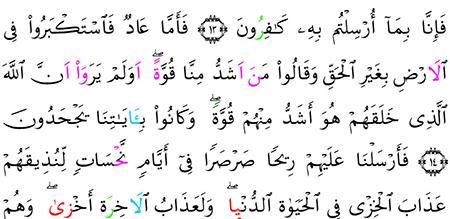 فَإِنَّا بِمَآ أُرْسِلْتُم بِهِۦ كَـٰفِرُونَ ١٣ فَأَمَّا عَادٌ فَٱسْتَكْبَرُوا۟ فِى
ٱلَارْضِ بِغَيْرِ ٱلْحَقِّ وَقَالُوا۟ مَنَ اَشَدُّ مِنَّا قُوَّةًۖ اَوَلَمْ يَرَوَا۟ اَنَّ ٱللَّهَ
ٱلَّذِى خَلَقَهُمْ هُوَ أَشَدُّ مِنْهُمْ قُوَّةًۖ وَكَانُوا۟ بِـَٔايَـٰتِنَا يَجْحَدُونَ
١٤ فَأَرْسَلْنَا عَلَيْهِمْ رِيحًا صَرْصَرًا فِىٓ أَيَّامٍ نَّحْسَاتٍ لِّنُذِيقَهُمْ
عَذَابَ ٱلْخِزْىِ فِى ٱلْحَيَوٰةِ ٱلدُّنْيَاۖ وَلَعَذَابُ ٱلَاخِرَةِ أَخْزَىٰۖ وَهُمْ